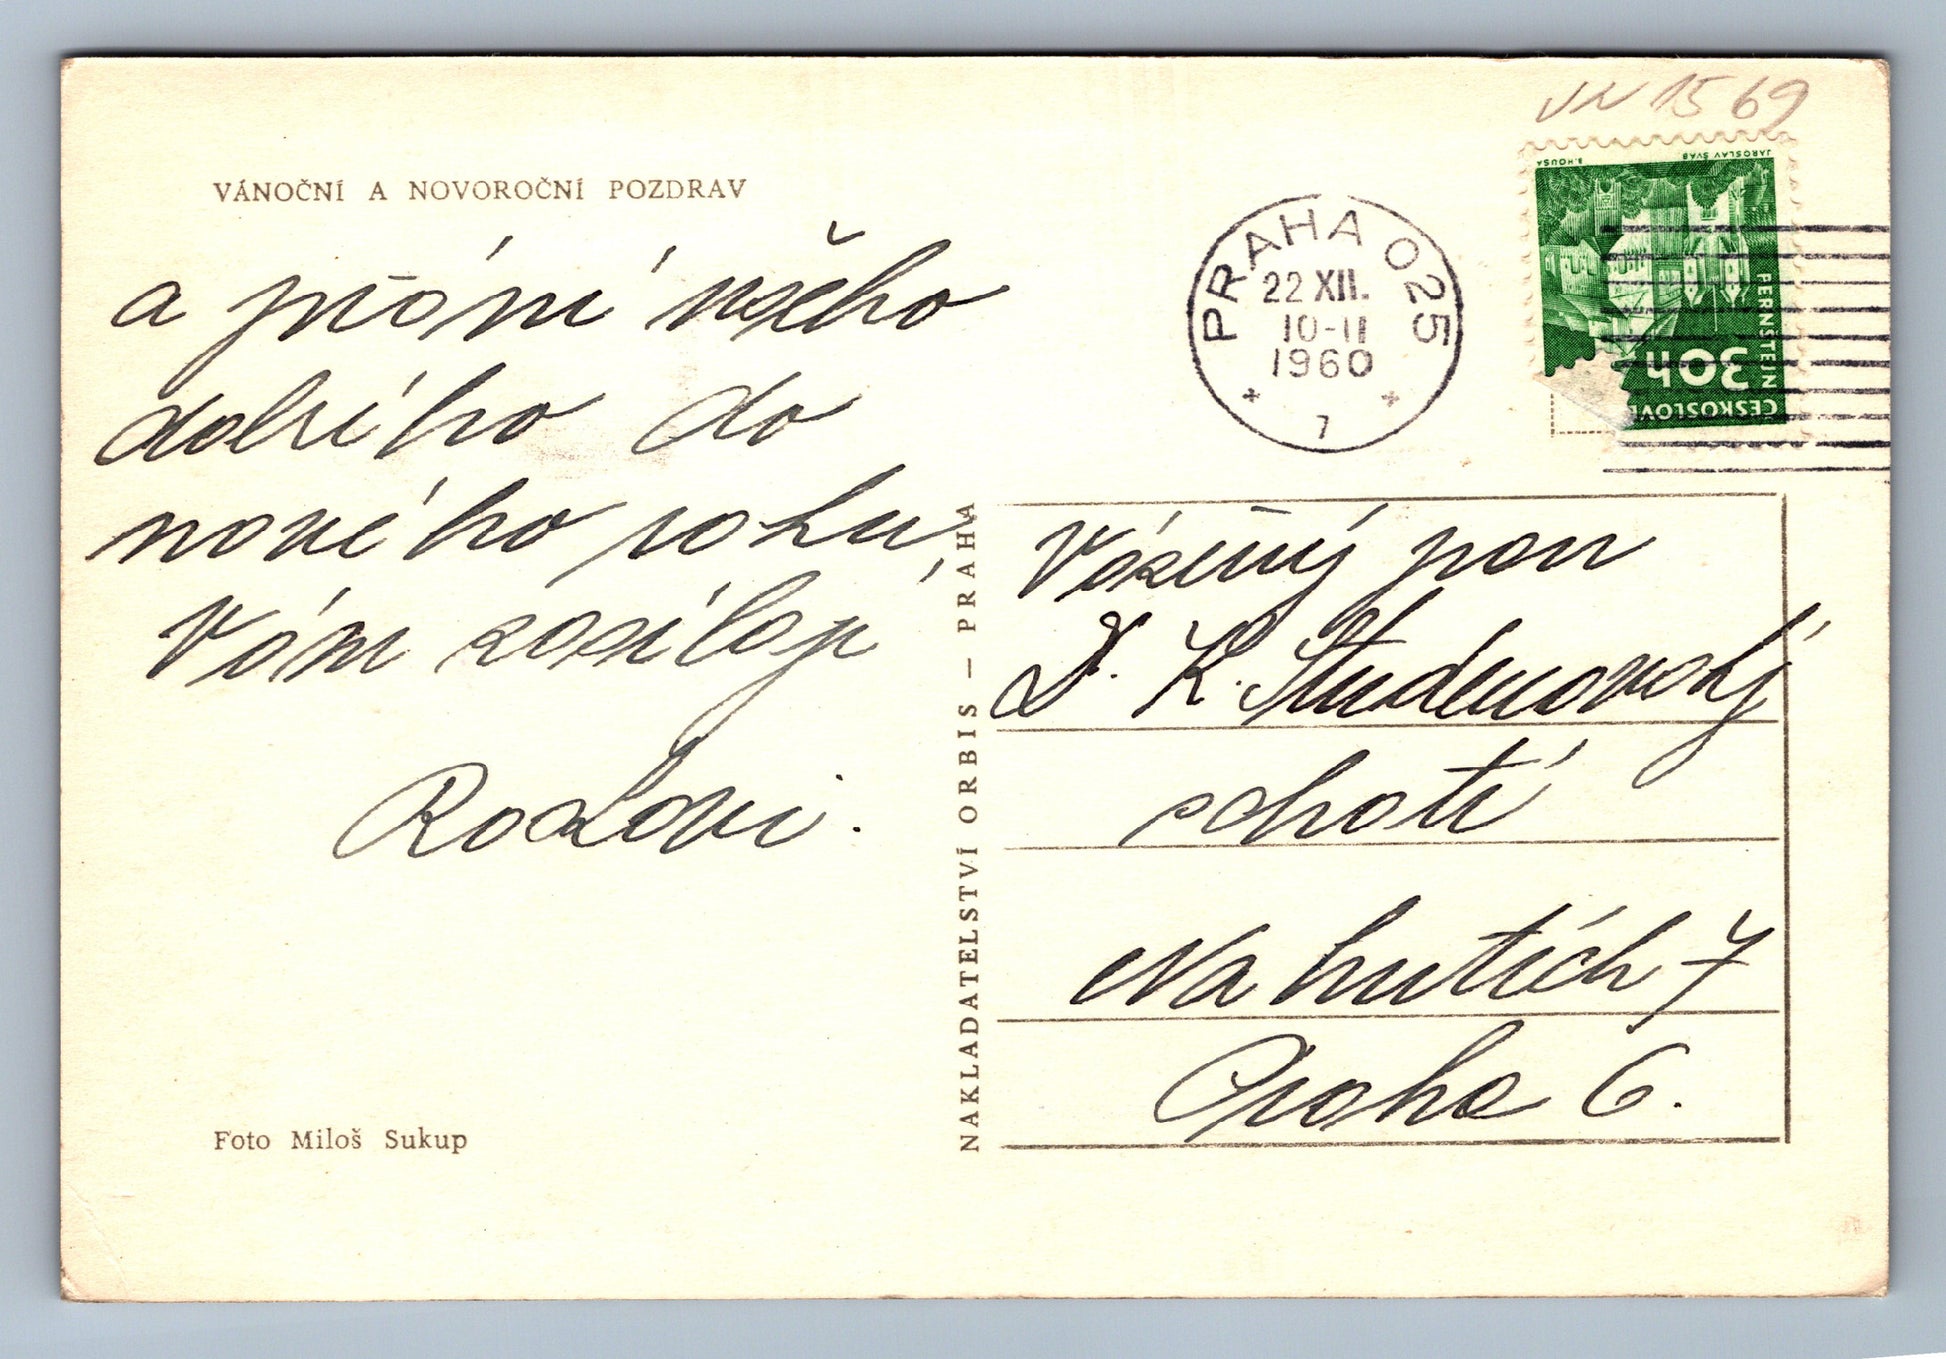 VN 1569
VÁNOČNÍ A NOVOROČNÍ POZDRAV
a přání všeho
dobrého do
nového roku,
Vám zasílají
Foto Miloš Sukup
NAKLADATELSTVÍ ORBIS – PRAHA
PRAHA 025
22 XII.
10-11
1960
7
JAROSLAV ŠVÁB
B. HOUSA
PERNŠTEJN
30h
ČESKOSLOVE
Vážený pan
K. Studenovský
s chotí
Na hutích 7
Praha 6.